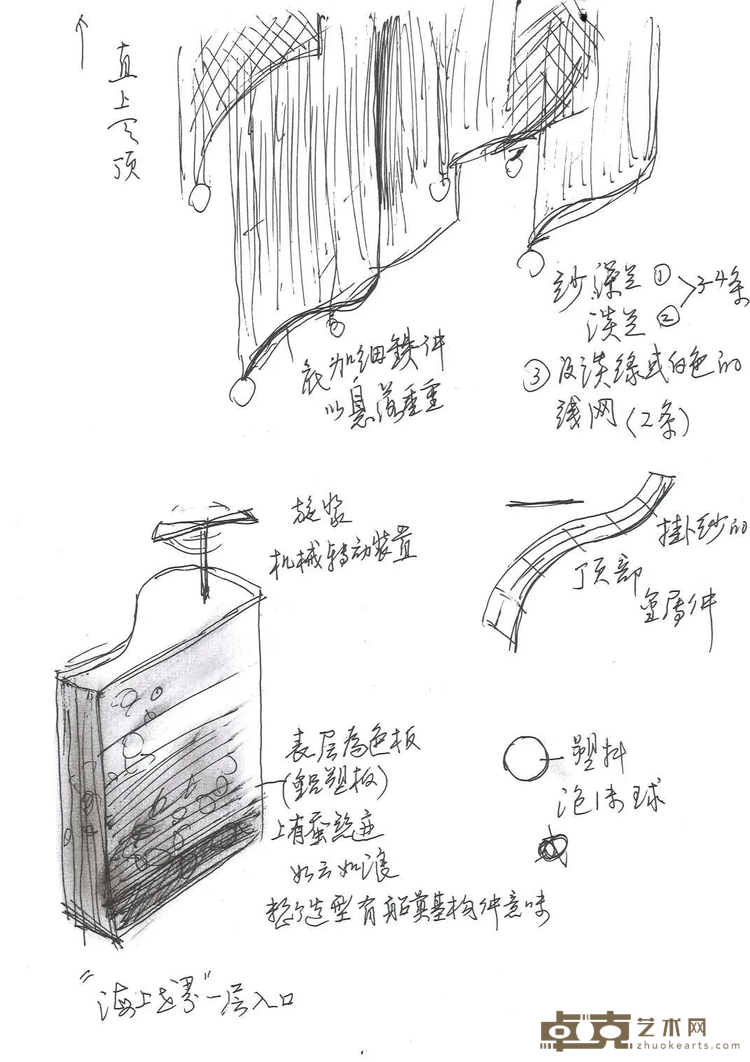 直上空顶
纱 深兰 ①
淡兰 ②
>3-4条
③ 及淡绿或白色的
线网（2条）
底加细铁件
以悬落垂重
旋浆
机械转动装置
挂纱的
顶部
金属件
表层为色板
(铝塑板)
上有蚕丝迹
如云如浪
整个造型有船奠基构件意味
塑料
泡沫球
"海上世界"一层入口
卓克艺术网
zhuokearts.com